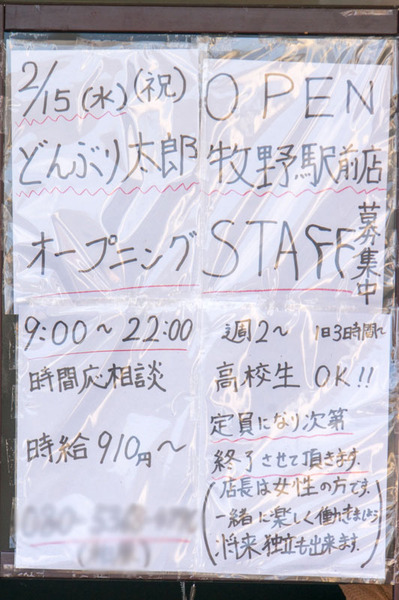 2/15(水)(祝) OPEN
どんぶり太郎 牧野駅前店
オープニング STAFF 募集中
9:00～22:00
時間応相談
時給910円～
週2～ 1日3時間～
高校生 OK!!
定員になり次第
終了させて頂きます。
(店長は女性の方です。
一緒に楽しく働きましょう
将来独立も出来ます。)